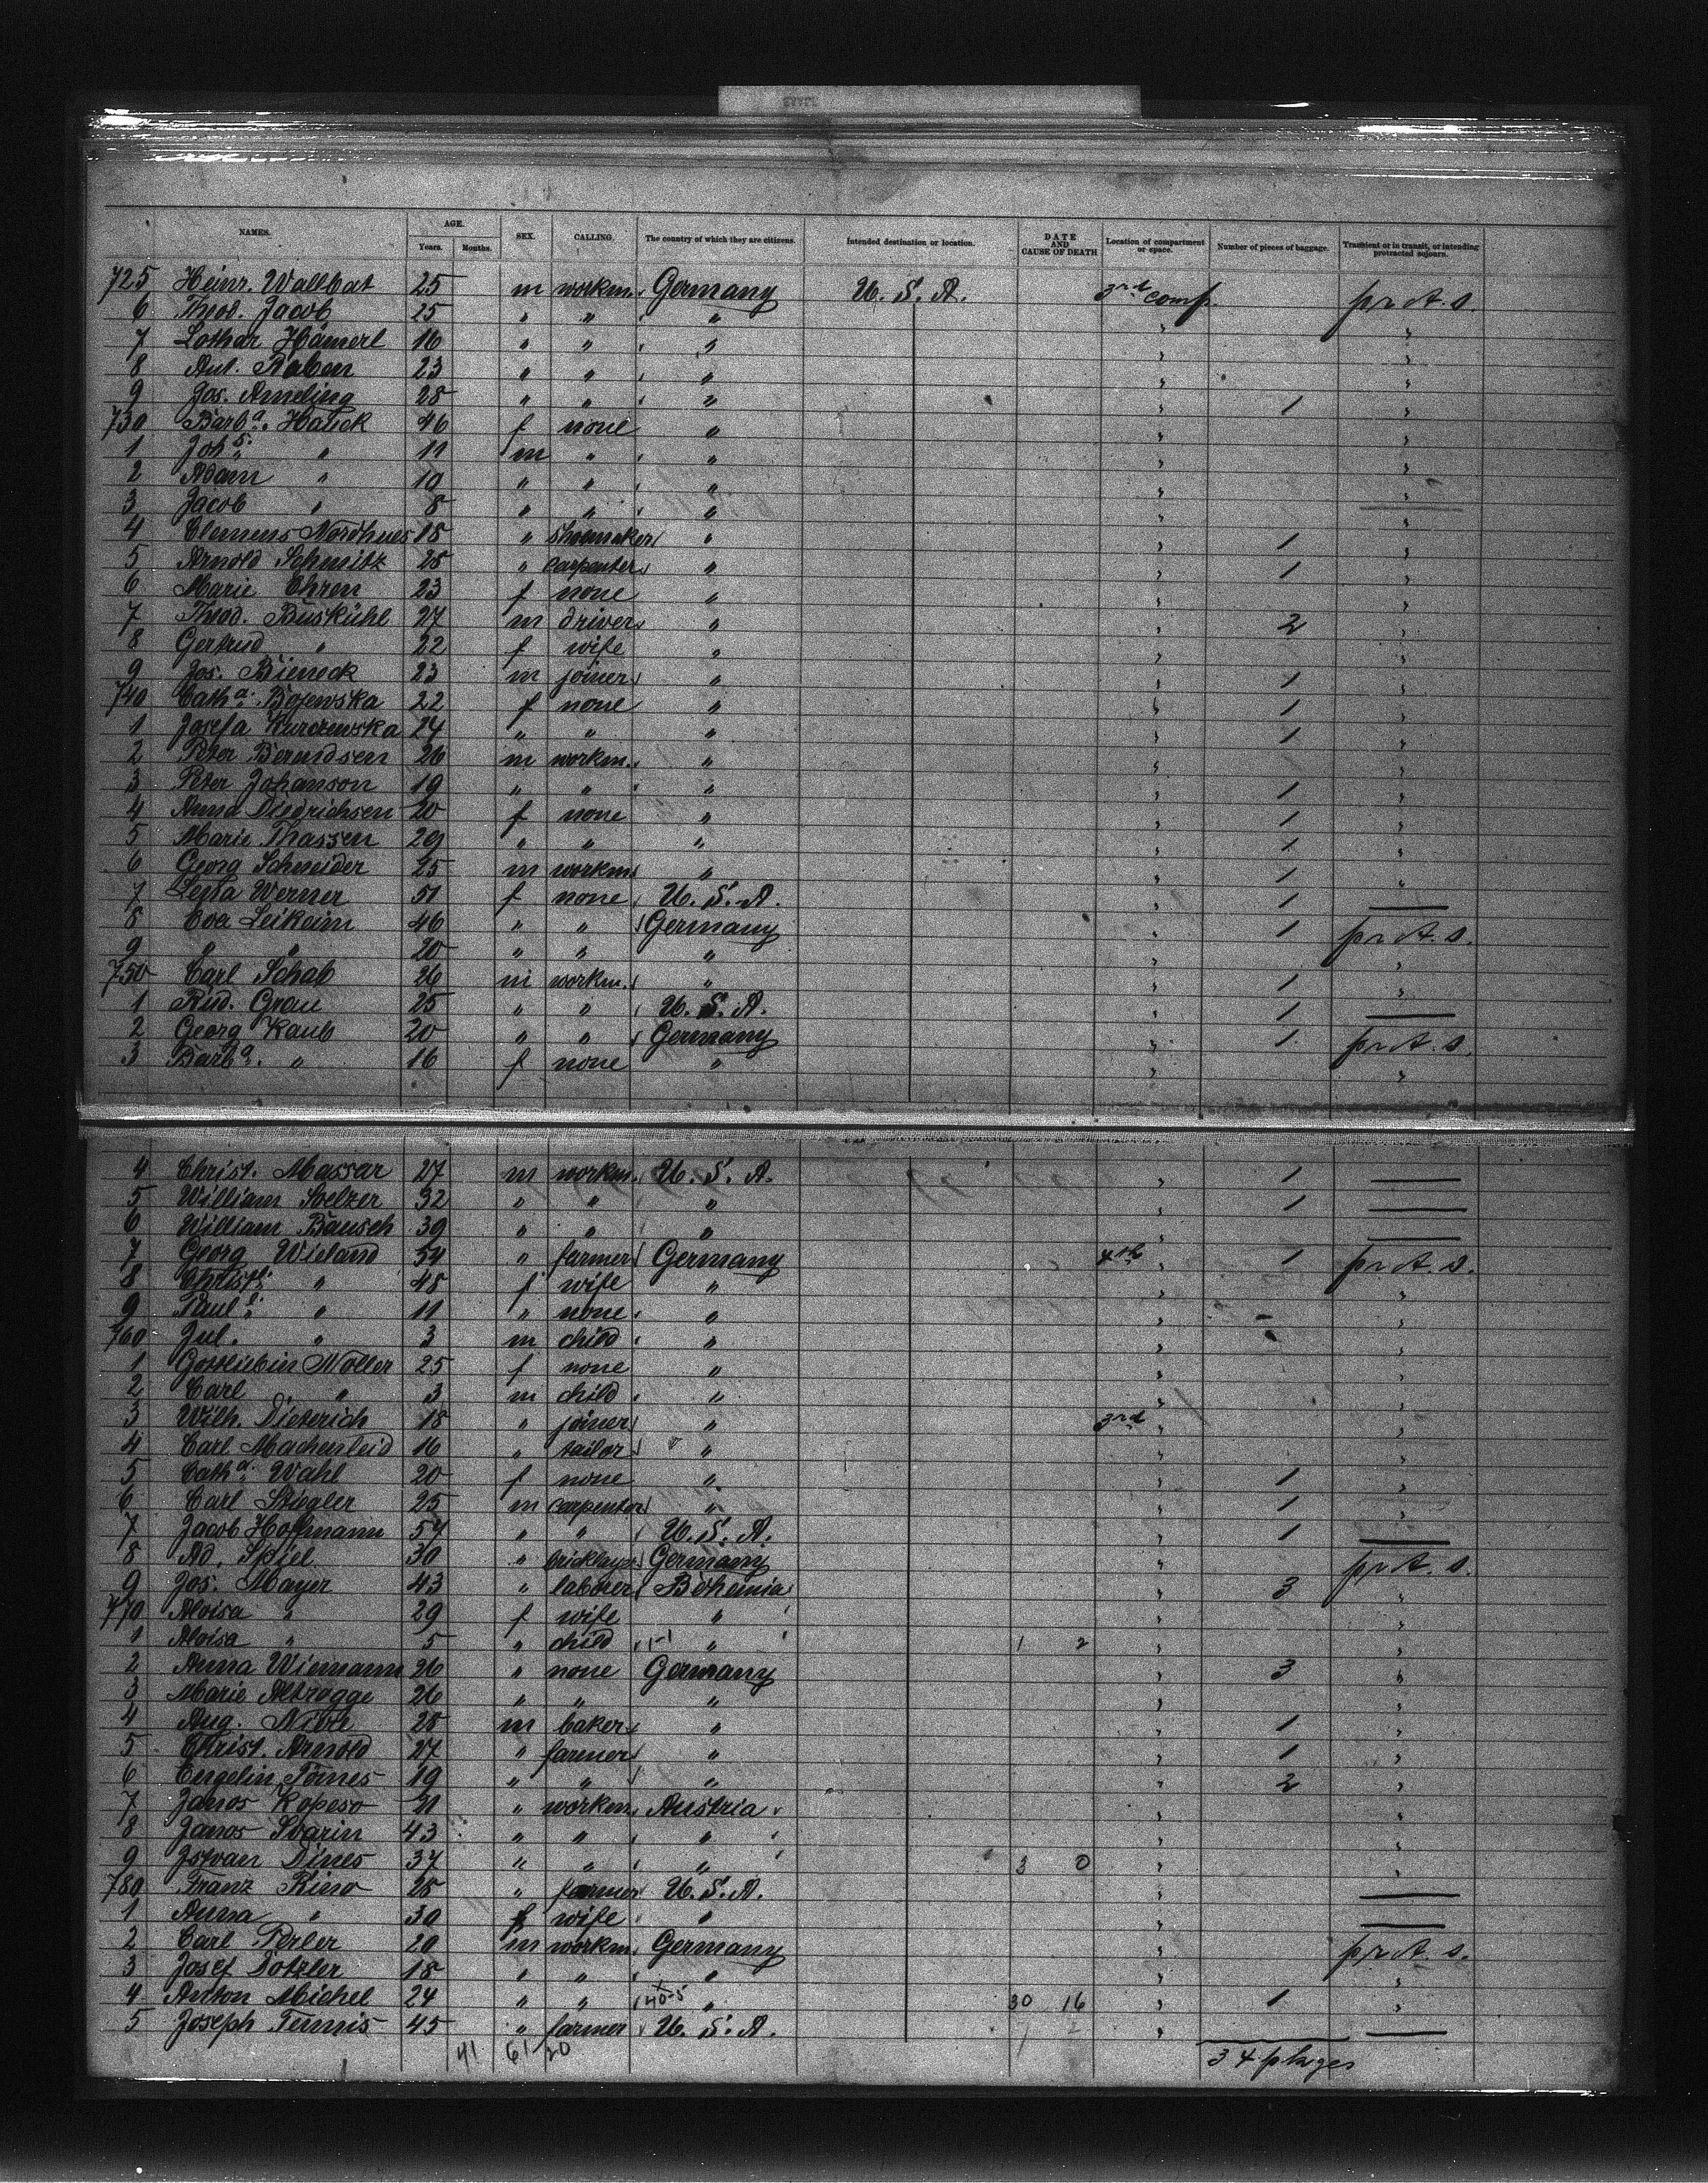 NAMES. AGE. SEX. CALLING. The country of which they are citizens. Intended destination or location. DATE AND CAUSE OF DEATH Location of compartment or space. Number of pieces of baggage. Transient or in transit, or intending protracted sojourn.
Years. Months.
725 Heinr. Wallbat 25 m workm. Germany U. S. A. 3rd comp. pr A. s.
6 Theod. Jacob 25 " " " " "
7 Lothar Hämerl 16 " " " " "
8 Ant. Raben 23 " " " " "
9 Jos. Ameling 28 " " " " 1 "
730 Barba. Hauck 46 f none " " "
1 Johs. " 11 m " " " "
2 Adam " 10 " " " " "
3 Jacob " 8 " " " " "
4 Clemens Nordhues 18 " shoemaker " " 1 "
5 Arnold Schmitz 28 " carpenter " " 1 "
6 Marie Ehren 23 f none " " "
7 Theod. Buskühl 27 m driver " " 2 "
8 Gertrud " 22 f wife " " "
9 Jos. Bieneck 23 m joiner " " 1 "
740 Catha. Bojewska 22 f none " " 1 "
1 Josefa Kurczewska 24 " " " " 1 "
2 Peter Berndsen 26 m workm. " " "
3 Peter Johanson 19 " " " " 1 "
4 Anna Diedrichsen 20 f none " " 1 "
5 Marie Thassen 29 " " " " 1 "
6 Georg Schneider 25 m workm. " " 1 "
7 Lena Werner 51 f none U. S. A. " 1 —
8 Eva Leikeim 46 " " Germany " 1 pr A. s.
9 " " 20 " " " " "
750 Carl Schab 26 m workm. " " 1 "
1 Rud. Grau 25 " " U. S. A. " 1 —
2 Georg Kaub 20 " " Germany " 1 pr A. s.
3 Barba. " 16 f none " " "
4 Christ. Massar 27 m workm. U. S. A. " 1 —
5 William Soelzer 32 " " " " 1 —
6 William Bausch 39 " " " " —
7 Georg Wieland 54 " farmer Germany 4th " 1 pr A. s.
8 " 48 f wife " " "
9 " 11 " none " " "
760 Jul. " 3 m child " " "
1 Gottliebin Noller 25 f none " " "
2 Carl " 3 m child " " "
3 Wilh. Dieterich 18 " joiner " 3rd " "
4 Carl Machenleid 16 " tailor " " "
5 Catha. Wahl 20 f none " " 1 "
6 Carl Stiegler 25 m carpenter " " 1 "
7 Jacob Hoffmann 57 " " U. S. A. " 1 —
8 Ad. Spiel 30 " bricklayer Germany " pr A. s.
9 Jos. Mayer 43 " laborer Bohemia " 3 "
770 Aloisa " 29 f wife " " "
1 Aloisa " 5 " child 1-1 " 1 2 " "
2 Anna Wiemann 26 " none Germany " 3 "
3 Marie Altrogge 26 " " " " "
4 Aug. 28 m baker " " 1 "
5 Christ. Arnold 27 " farmer " " 1 "
6 Engelin Tömes 19 " " " " 2 "
7 Janos Kopeso 21 " workm. Austria " "
8 Janos Svarin 43 " " " " "
9 Istvan Dines 37 " " " 3 0 " "
780 Franz 28 " farmer U. S. A. " —
1 Anna " 30 f wife " " —
2 Carl Perler 20 m workm. Germany " pr A. s.
3 Josef Dotzler 18 " " " " "
4 Anton Michel 24 " " 40-5 " 30 16 " 1 "
5 Joseph Temmis 45 " farmer U. S. A. 1 2 " —
41 61/20 34 pkges